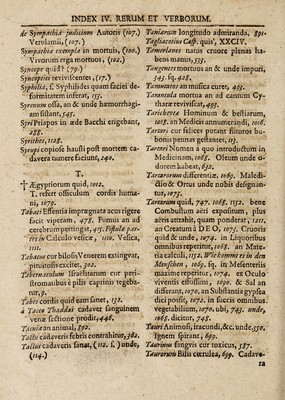 INDEX IV. RERUM ET VERBORUM.
de Sympathiæ judicium Autoris (107.)
Verulamii, (107.)
Sympathiæ exempla in mortuis, (100.)
Vivorum erga mortuos, (102.)
Syncope quid? (79.)
Syncopici revivificentes, (17.)
Syphilis, s. Syphilides quam faciei de-
formitatem inferant, 153.
Syrenum ossa, an & unde hæmorrhagi-
am sistant, 545.
Syri Priapos in æde Bacchi erigebant,
288.
Syrites, 1128.
Syrupi copiosè hausti post mortem ca-
davera tumere faciunt, 240.
T.
† Ægyptiorum quid, 1012.
T. refert officulum cordis huma-
ni, 1079.
Tabaci Essentia impregnata acus rigere
facit viperam, 477. Fumus an ad
cerebrum pertingat, 415. Fistulæ par-
tes in Calculo vesicæ, 1110. Vesica,
1111.
Tabacus cur biliosis Venerem extingvat,
pituitosis excitet, 302.
Tabernaculum Israëlitarum cur peri-
stromatibus è pilis caprinis tegeba-
tur, 9.
Taber cordis quid eam sanet, 152.
à Tacco Thaddæi cadavez sanguinem
venæ sectione prodit, 446.
Tacula an animal, 892.
Tactu cadaveris febris contrahitur, 362.
Tactui cadaveris sanat, (112. s.) unde,
(114.)
Taniarum longitudo admiranda, 891.
Tagliacotius Casp. quis, XXCIV.
Tamerlanes natus cruore plenas ha-
bens manus, 535.
Tangentes mortuos an & unde impuri,
343. sq. 428.
Tannatos an musica curet, 495.
Tarantula mortua an ad cannum Cy-
tharæ reviviscat, 495.
Tarichevta Hominum & bestiarum,
1018. an Medicis annumerandi, 1016.
Tartari cur felices putant futuros bu-
bonis pennas gestantes, 113.
Tartari Nomen à quo introductum in
Medicinam, 1065. Oleum unde o-
dorem habeat, 632.
Tartarorum differentiæ, 1069. Maledi-
ctio & Ortus unde nobis designan-
tur, 1075.
Tartarum quid, 747. 1068. 1152. bene
Combustum aeri expositum, plus
aëris attrahit, quam ponderet, 1211.
an Creatum à DEO, 1075. Cruoris
quid & unde, 1074. in Liquoribus
omnibus reperitur, 1068. an Mate-
ria calculi, 1152. Wie kommt er in den
Menschen? 1069. sq. in Meleneris
maximè reperitur, 1074. ex Oculo
viventis effossum, 1090. & Sal an
differant, 1070. an Substantia gypsea
dici possit, 1072. in succis omnibus.
vegetabilium, 1070. ubi, 743. unde,
1068. dicitur, 748.
Tauri Animosi, iracundi, &c. unde, 590.
Ignem spirant, 690.
Taurinus sangvis cur toxicus, 587.
Taurorum Bilis cœrulea, 699. Cadave-
ra